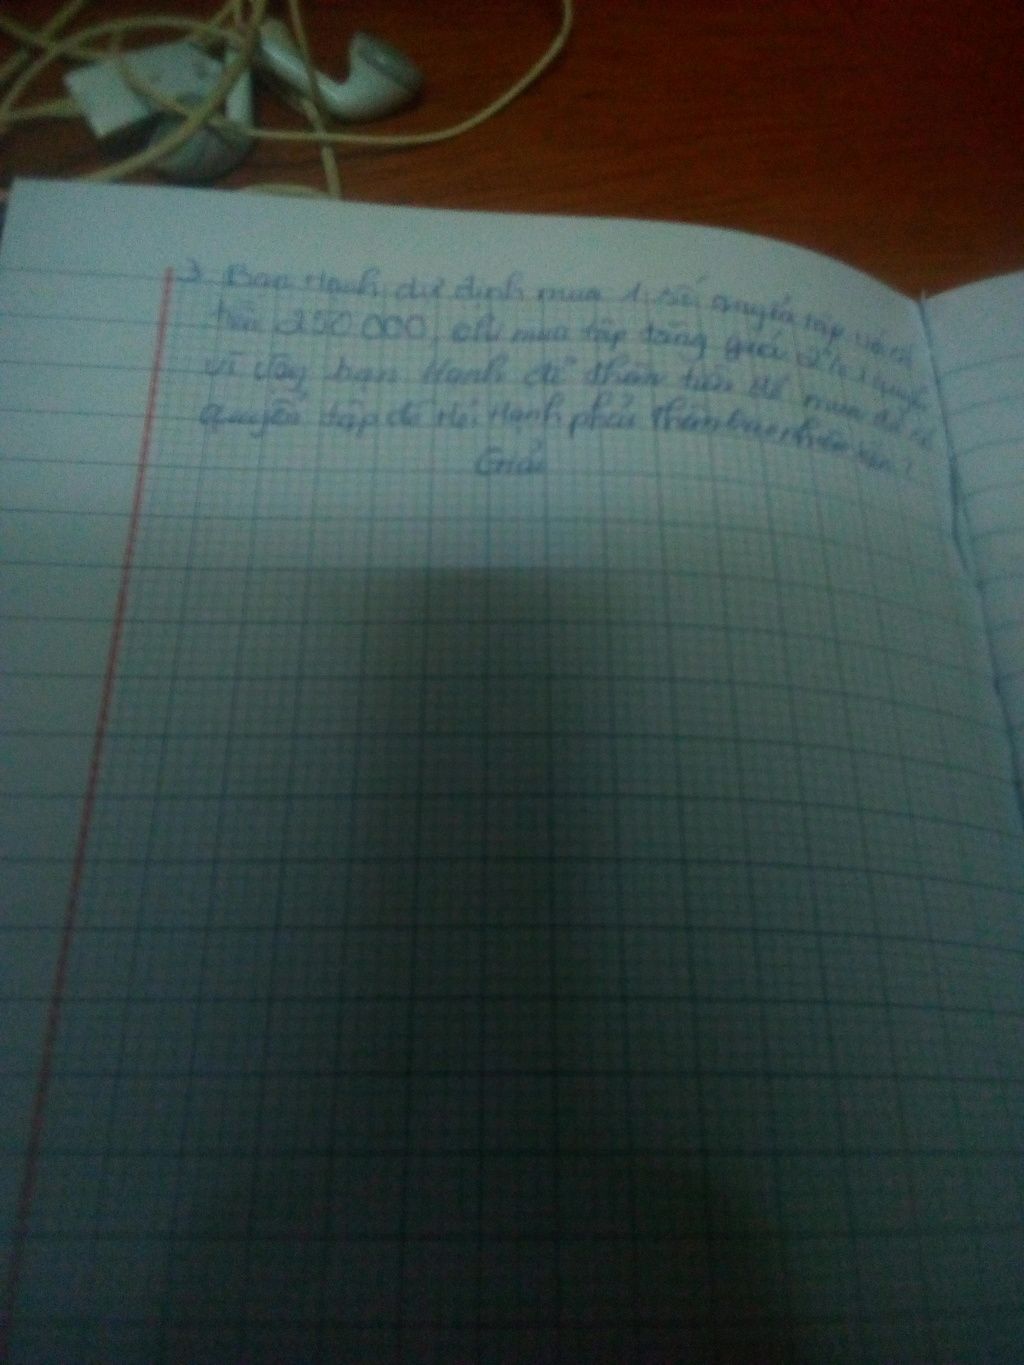 3. Bạn Hạnh dự định mua 1 số quyển tập với số
tiền 250.000, khi mua tập tăng giá 2% 1 quyển
vì vậy bạn Hạnh để thêm tiền để mua đủ số
quyển tập đó Hỏi Hạnh phải thêm bao nhiêu tiền?
Giải